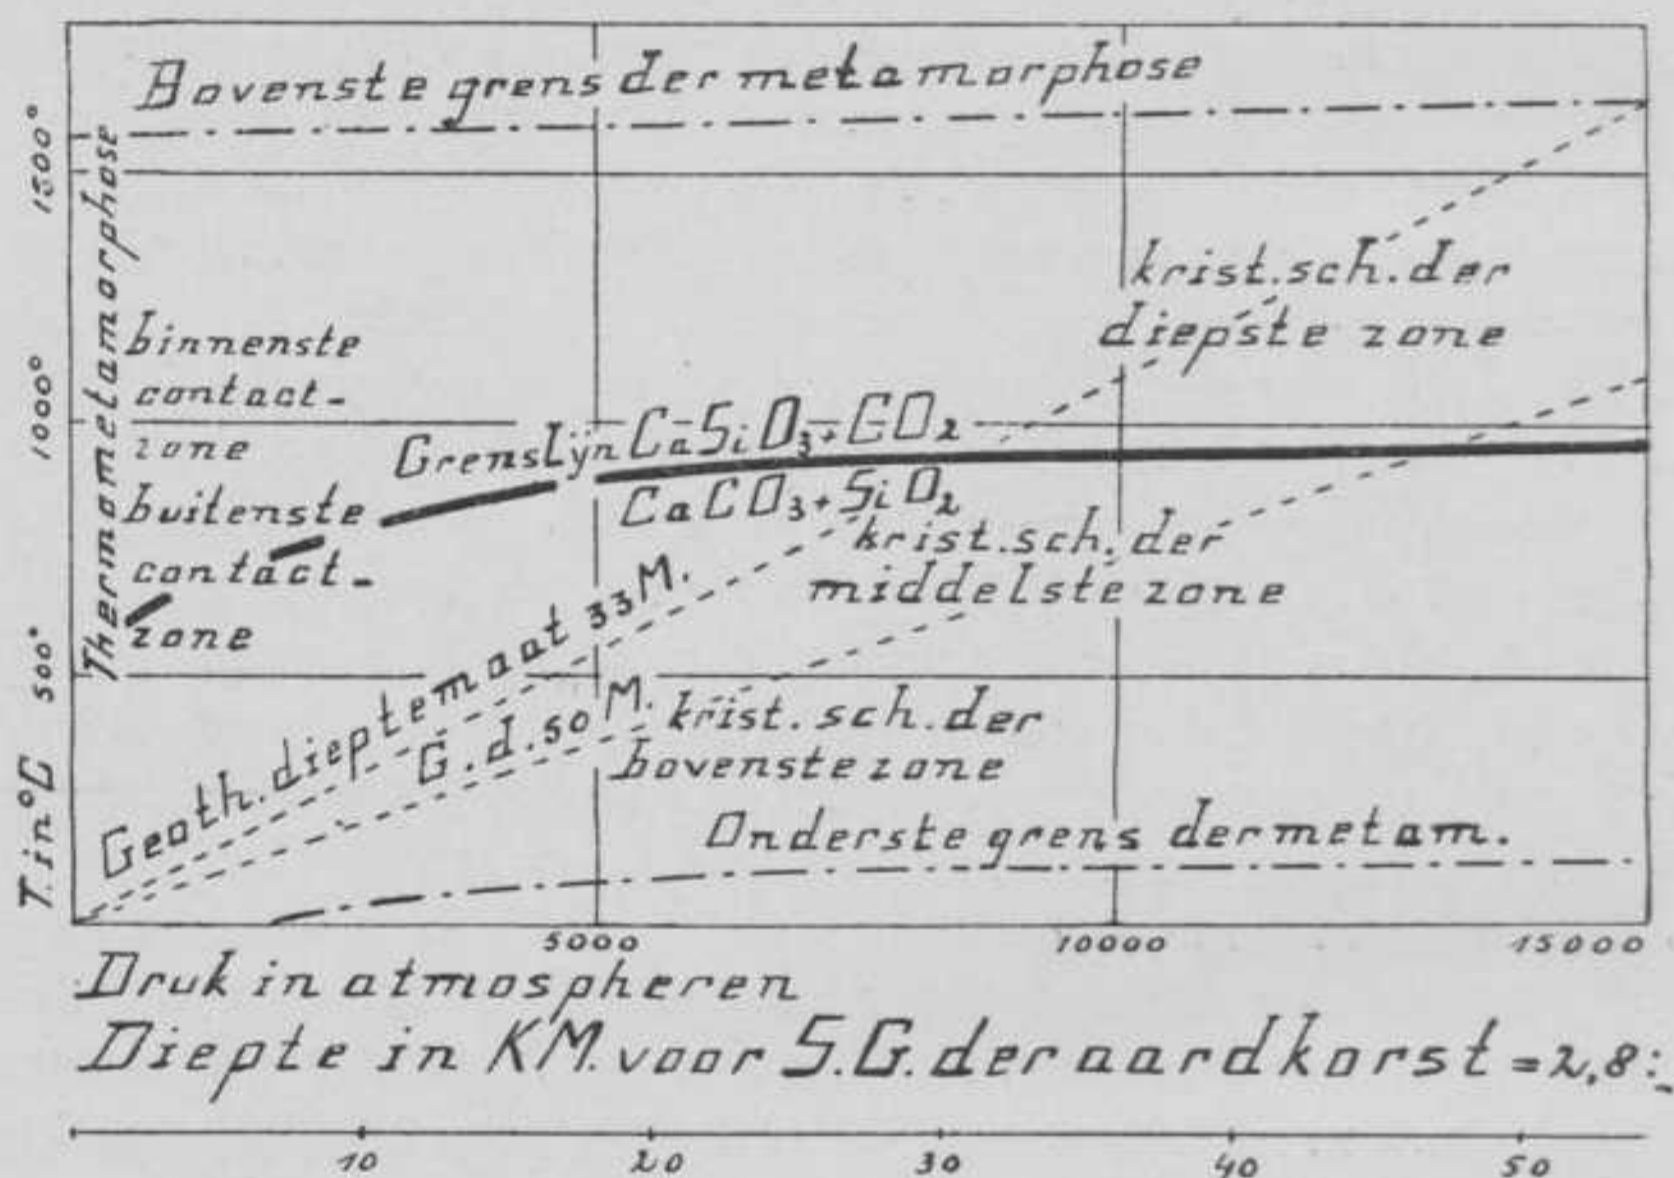 Bovenste grens der metamorphose
1500°
Thermometamorphose
krist. sch. der
diepste zone
binnenste
contact-
zone
1000°
Grenslijn CaSiO3+CO2
CaCO3+SiO2
buitenste
contact-
zone
krist. sch. der
middelste zone
500°
Geoth. dieptemaat 33 M.
G. d. 50 M.
krist. sch. der
bovenste zone
Onderste grens der metam.
T. in °C
5000 10000 15000
Druk in atmospheren
Diepte in KM. voor S.G. der aardkorst = 2,8:
10 20 30 40 50